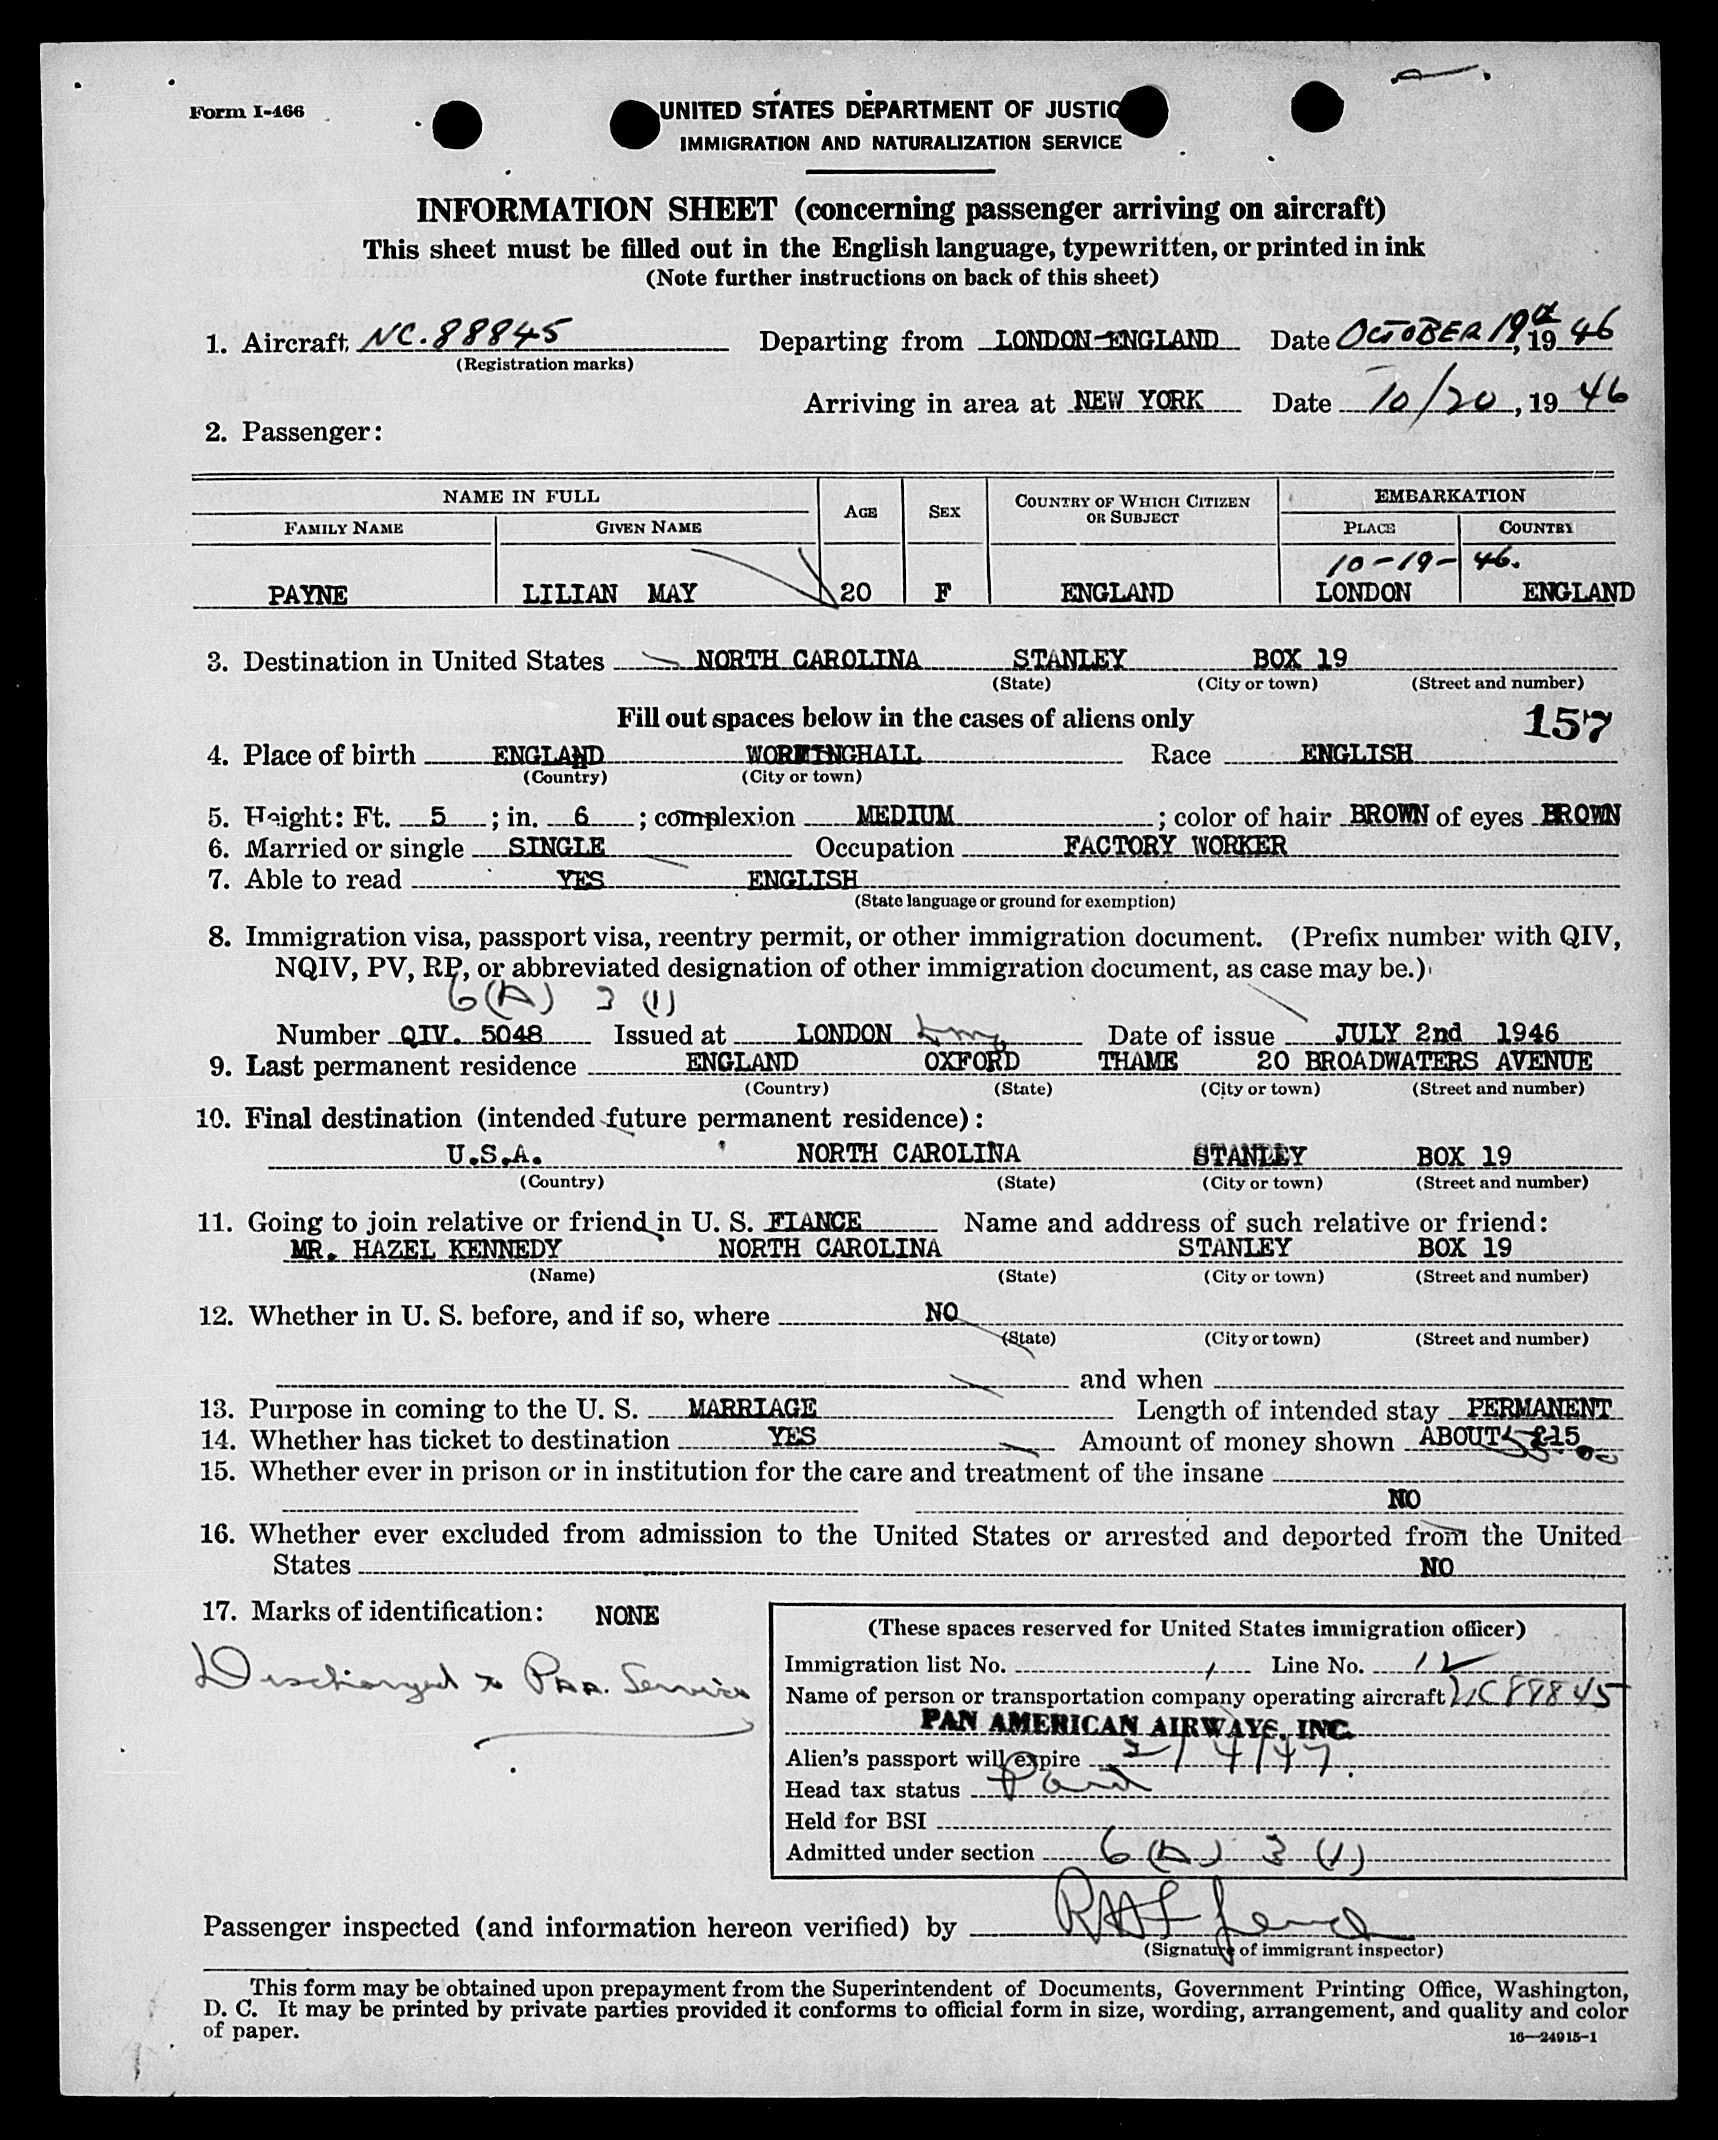 Form I-466
UNITED STATES DEPARTMENT OF JUSTIC
IMMIGRATION AND NATURALIZATION SERVICE
INFORMATION SHEET (concerning passenger arriving on aircraft)
This sheet must be filled out in the English language, typewritten, or printed in ink
(Note further instructions on back of this sheet)
1. Aircraft NC.88845 Departing from LONDON-ENGLAND Date OCTOBER 19th, 19 46
(Registration marks)
Arriving in area at NEW YORK Date 10/20, 19 46
2. Passenger:
NAME IN FULL AGE SEX COUNTRY OF WHICH CITIZEN OR SUBJECT EMBARKATION
FAMILY NAME GIVEN NAME PLACE COUNTRY
10-19-46.
PAYNE LILIAN MAY 20 F ENGLAND LONDON ENGLAND
3. Destination in United States NORTH CAROLINA STANLEY BOX 19
(State) (City or town) (Street and number)
Fill out spaces below in the cases of aliens only
157
4. Place of birth ENGLAND WORMINGHALL Race ENGLISH
(Country) (City or town)
5. Height: Ft. 5 ; in. 6 ; complexion MEDIUM ; color of hair BROWN of eyes BROWN
6. Married or single SINGLE Occupation FACTORY WORKER
7. Able to read YES ENGLISH
(State language or ground for exemption)
8. Immigration visa, passport visa, reentry permit, or other immigration document. (Prefix number with QIV,
NQIV, PV, RP, or abbreviated designation of other immigration document, as case may be.)
6(A) 3 (1)
Number QIV. 5048 Issued at LONDON Date of issue JULY 2nd 1946
9. Last permanent residence ENGLAND OXFORD THAME 20 BROADWATERS AVENUE
(Country) (State) (City or town) (Street and number)
10. Final destination (intended future permanent residence):
U.S.A. NORTH CAROLINA STANLEY BOX 19
(Country) (State) (City or town) (Street and number)
11. Going to join relative or friend in U. S. FIANCE Name and address of such relative or friend:
MR. HAZEL KENNEDY NORTH CAROLINA STANLEY BOX 19
(Name) (State) (City or town) (Street and number)
12. Whether in U. S. before, and if so, where NO
(State) (City or town) (Street and number)
and when
13. Purpose in coming to the U. S. MARRIAGE Length of intended stay PERMANENT
14. Whether has ticket to destination YES Amount of money shown ABOUT £15
15. Whether ever in prison or in institution for the care and treatment of the insane
NO
16. Whether ever excluded from admission to the United States or arrested and deported from the United
States NO
17. Marks of identification: NONE
Discharged to Paa. Service
(These spaces reserved for United States immigration officer)
Immigration list No. 1 Line No. 12
Name of person or transportation company operating aircraft NC88845
PAN AMERICAN AIRWAYS, INC.
Alien's passport will expire 2/4/47.
Head tax status Paid
Held for BSI
Admitted under section 6(A) 3 (1)
Passenger inspected (and information hereon verified) by
(Signature of immigrant inspector)
This form may be obtained upon prepayment from the Superintendent of Documents, Government Printing Office, Washington,
D. C. It may be printed by private parties provided it conforms to official form in size, wording, arrangement, and quality and color
of paper.
16—24915-1